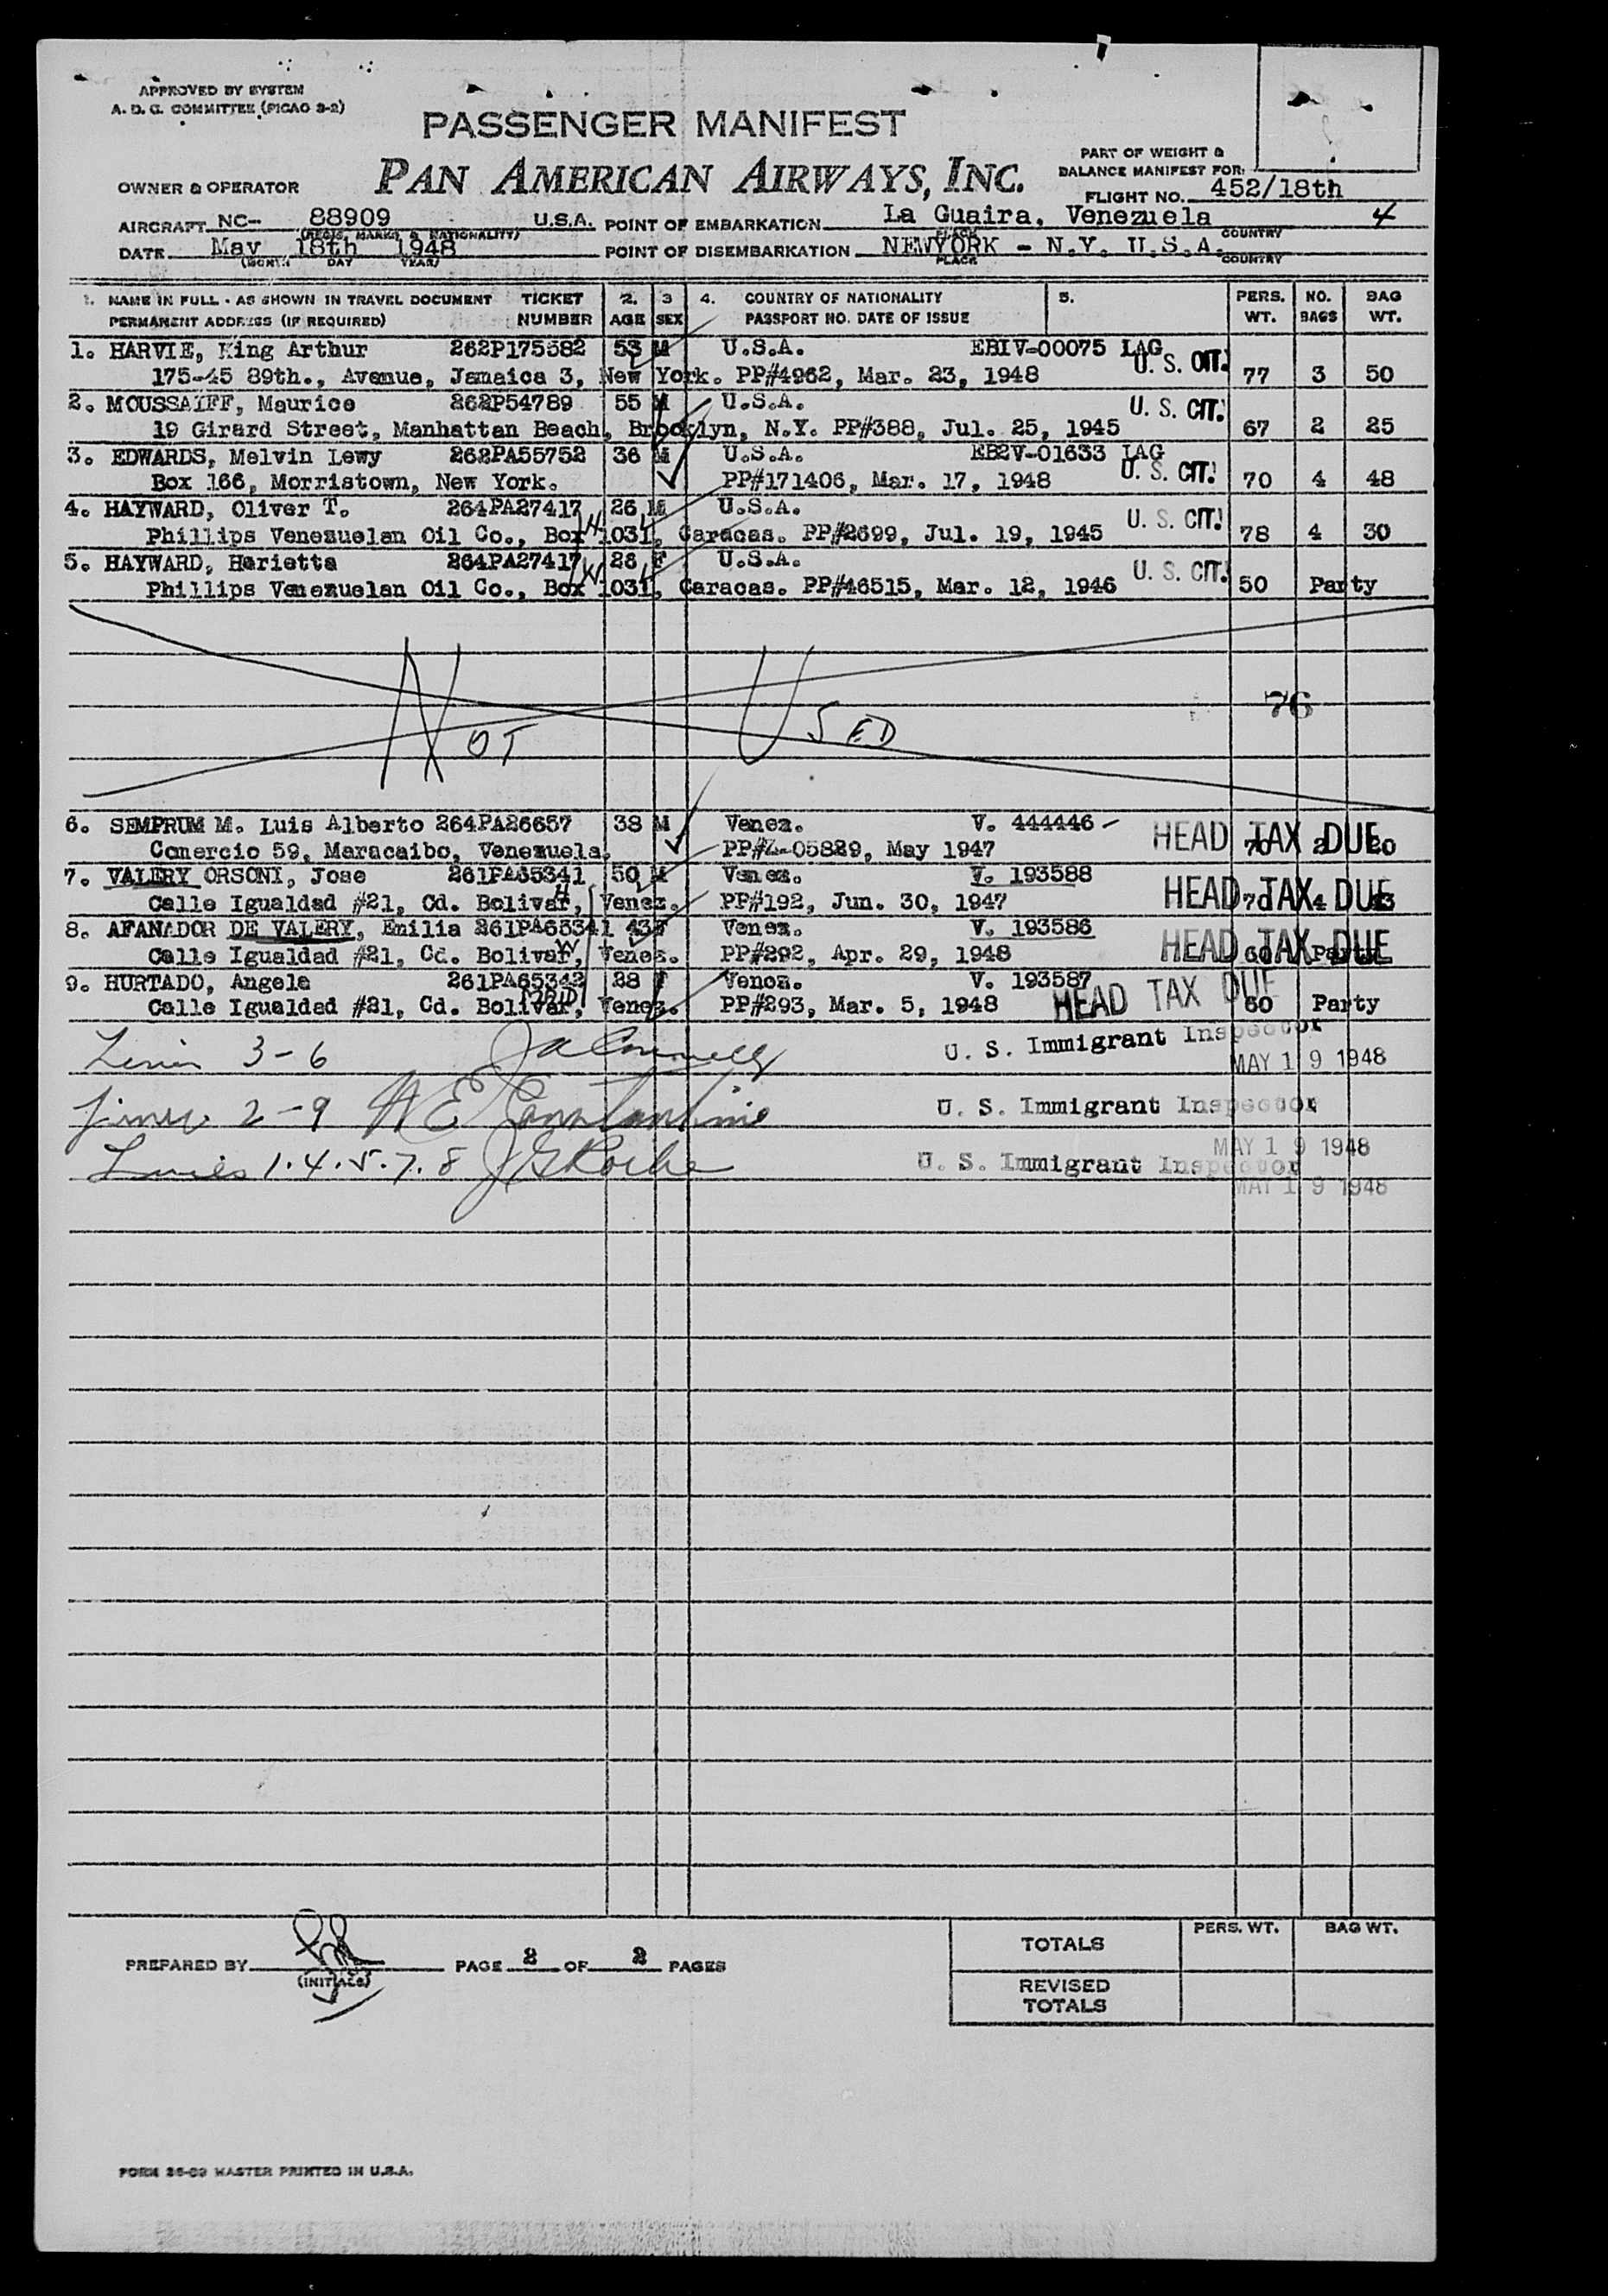 APPROVED BY SYSTEM
A. D. G. COMMITTEE (PICAO 3-2)
PASSENGER MANIFEST
PAN AMERICAN AIRWAYS, INC.
PART OF WEIGHT &
BALANCE MANIFEST FOR:
OWNER & OPERATOR
FLIGHT NO. 452/18th
AIRCRAFT NC- 88909 U.S.A. POINT OF EMBARKATION La Guaira, Venezuela 4
(REGIS. MARKS & NATIONALITY) PLACE COUNTRY
DATE May 18th 1948 POINT OF DISEMBARKATION NEWYORK - N.Y. U.S.A.
(MONTH DAY YEAR) PLACE COUNTRY
1. NAME IN FULL - AS SHOWN IN TRAVEL DOCUMENT TICKET 2. 3 4. COUNTRY OF NATIONALITY 5. PERS. NO. BAG
PERMANENT ADDRESS (IF REQUIRED) NUMBER AGE SEX PASSPORT NO. DATE OF ISSUE WT. BAGS WT.
1. HARVIE, King Arthur 262P175582 53 M U.S.A. EBIV-00075 LAG
175-45 89th., Avenue, Jamaica 3, New York. PP#4962, Mar. 23, 1948 U. S. CIT. 77 3 50
2. MOUSSAIFF, Maurice 262P54789 55 M U.S.A. U. S. CIT.
19 Girard Street, Manhattan Beach, Brooklyn, N.Y. PP#388, Jul. 25, 1945 67 2 25
3. EDWARDS, Melvin Lewy 262PA55752 36 M U.S.A. EB2V-01633 LAG
Box 166, Morristown, New York. PP#171406, Mar. 17, 1948 U. S. CIT. 70 4 48
4. HAYWARD, Oliver T. 264PA27417 26 M U.S.A. U. S. CIT.
Phillips Venezuelan Oil Co., Box 1031, Caracas. PP#2699, Jul. 19, 1945 78 4 30
5. HAYWARD, Harietta 264PA27417 28 F U.S.A. U. S. CIT.
Phillips Venezuelan Oil Co., Box 1031, Caracas. PP#46515, Mar. 12, 1946 50 Party
NOT USED
76
6. SEMPRUM M. Luis Alberto 264PA26657 38 M Venez. V. 444446
Comercio 59, Maracaibo, Venezuela. PP#Z-05829, May 1947 HEAD TAX DUE 70 2 20
7. VALERY ORSONI, Jose 261PA65341 50 M Venez. V. 193588
H
Calle Igualdad #21, Cd. Bolivar, Venez. PP#192, Jun. 30, 1947 HEAD TAX DUE 70 4
8. AFANADOR DE VALERY, Emilia 261PA65341 Venez. V. 193586
W
Calle Igualdad #21, Cd. Bolivar, Venez. PP#292, Apr. 29, 1948 HEAD TAX DUE 60 Party
9. HURTADO, Angela 261PA65342 28 F Venez. V. 193587
Calle Igualdad #21, Cd. Bolivar, Venez. PP#293, Mar. 5, 1948 HEAD TAX DUE 60 Party
3-6 U. S. Immigrant Inspector
MAY 19 1948
2-9 U. S. Immigrant Inspector
MAY 19 1948
1.4.5.7.8 U. S. Immigrant Inspector
MAY 19 1948
PREPARED BY PAGE 2 OF 2 PAGES
(INITIALS)
TOTALS PERS. WT. BAG WT.
REVISED
TOTALS
FORM 36-09 MASTER PRINTED IN U.S.A.